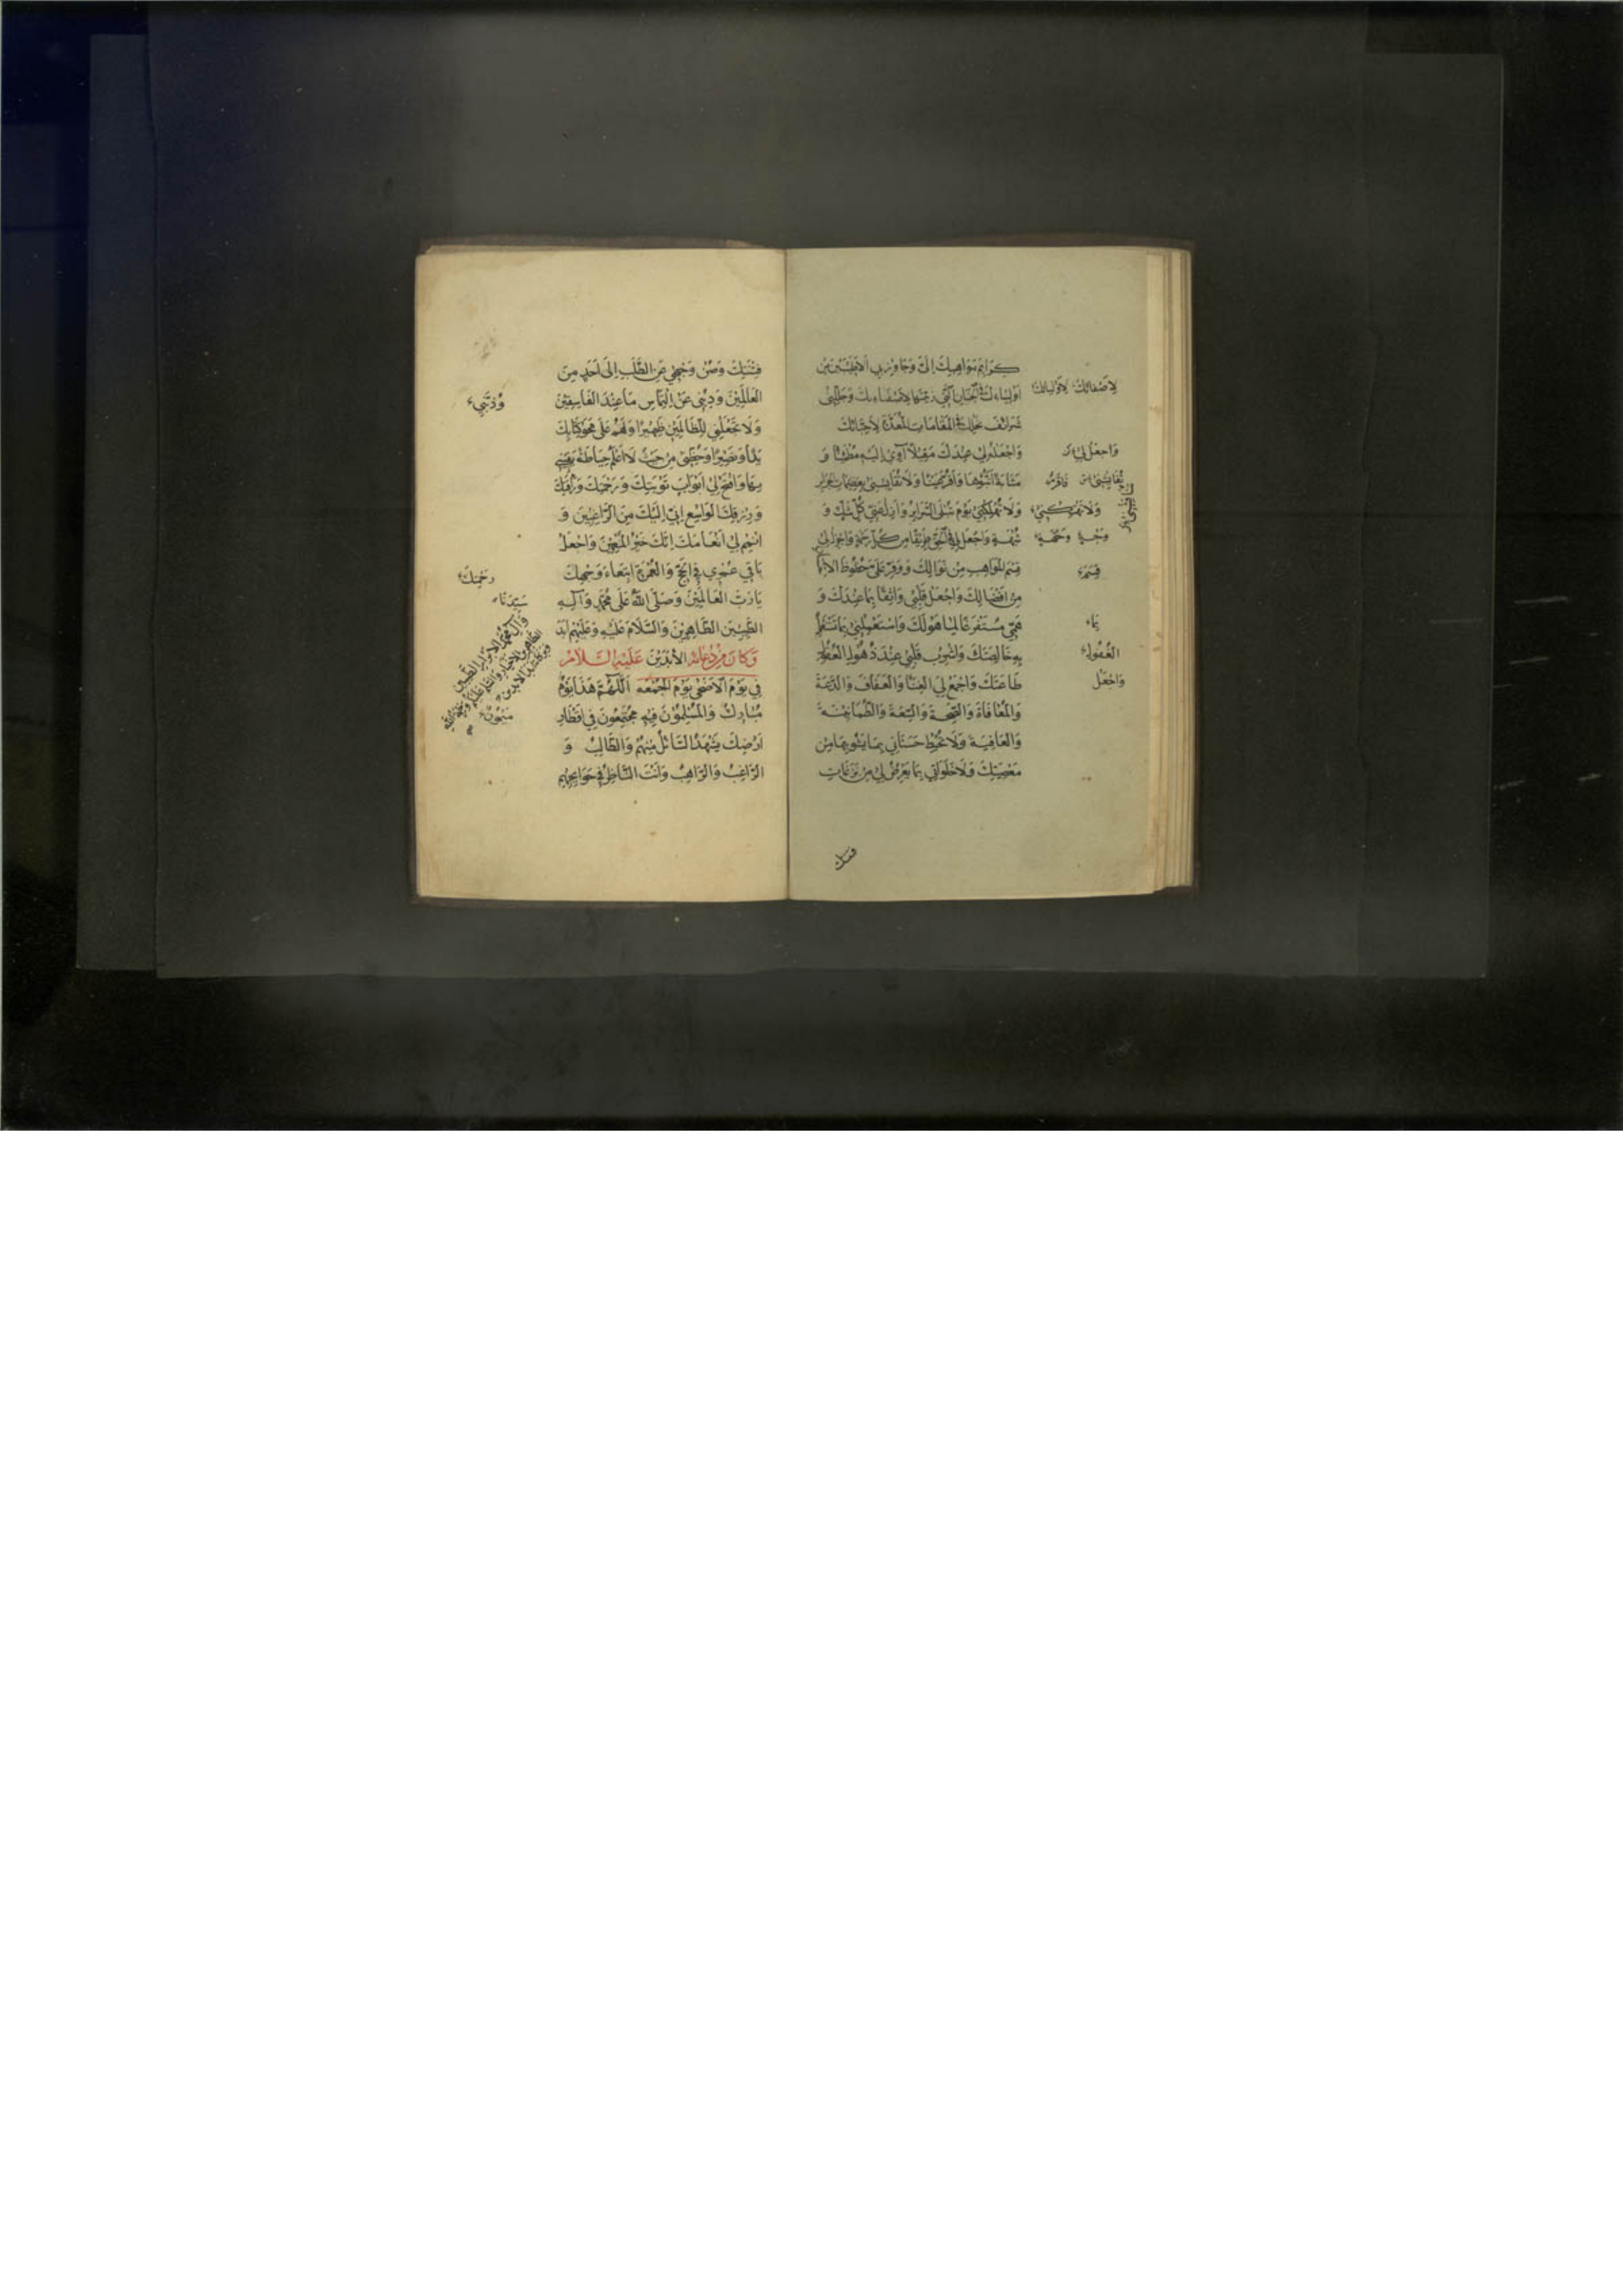 كَرَائِمَ مَوَاهِبِكَ إِلَيَّ وَجَاوِرْ بِيَ الْأَطْيَبِينَ مِنْ
اَوْلِيَاءِكَ فِي الْجِنَانِ الَّتِي زَيَّنْتَهَا لِاَصْفِيَاءِكَ وَجَلِّلْنِي
شَرَائِفَ نِحَلِكَ فِي الْمَقَامَاتِ الْمُعَدَّةِ لِاَحِبَّائِكَ
وَاجْعَلْ لِي عِنْدَكَ مَقِيلًا آوِي اِلَيْهِ مُطْمَئِنًّا وَ
مَثَابَةً اَتَبَوَّؤُهَا وَاَقَرُّ عَيْنًا وَلَا تُقَايِسْنِي بِعَظِيمَاتِ
وَلَا تُهْلِكْنِي يَوْمَ تُبْلَى السَّرَائِرُ وَاَزِلْ عَنِّي كُلَّ شَكٍّ وَ
شُبْهَةٍ وَاجْعَلْ لِي فِي الْحَقِّ طَرِيقًا مِنْ كُلِّ رَحْمَةٍ وَاَجْزِلْ لِي
قِسَمَ الْمَوَاهِبِ مِنْ نَوَالِكَ وَوَفِّرْ عَلَيَّ حُظُوظَ الْاِحْسَانِ
مِنْ اِفْضَالِكَ وَاجْعَلْ قَلْبِي وَاثِقًا بِمَا عِنْدَكَ وَ
هَمِّي مُسْتَفْرَغًا لِمَا هُوَ لَكَ وَاسْتَعْمِلْنِي بِمَا تَسْتَعْمِلُ
بِهِ خَالِصَتَكَ وَاَشْرِبْ قَلْبِي عِنْدَ ذُهُولِ الْعُقُولِ
طَاعَتَكَ وَاجْمَعْ لِي الْغِنَا وَالْعَفَافَ وَالدَّعَةَ
وَالْمُعَافَاةَ وَالصِّحَّةَ وَالسَّعَةَ وَالطُّمَانِينَةَ
وَالْعَافِيَةَ وَلَا تُحْبِطْ حَسَنَاتِي بِمَا يَشُوبُهَا مِنْ
مَعْصِيَتِكَ وَلَا خَلَوَاتِي بِمَا يَعْرِضُ لِي مِنْ نَزَغَاتِ
لِاَصْفِيَائِكَ لِاَوْلِيَائِكَ
وَاجْعَلْ لِي
تُقَايِسْنِي
وَلَا تُهْلِكْنِي
قِسَمَ
بِمَا
الْعُقُولِ
وَاجْعَلْ
فِتْنَتِكَ وَصُنْ وَجْهِي عَنِ الطَّلَبِ إِلَى اَحَدٍ مِنَ
الْعَالَمِينَ وَذُبَّنِي عَنِ الْتِمَاسِ مَا عِنْدَ الْفَاسِقِينَ
وَلَا تَجْعَلْنِي لِلظَّالِمِينَ ظَهِيرًا وَلَهُمْ عَلَى مَحْوِ كِتَابِكَ
يَدًا وَنَصِيرًا وَحُطْنِي مِنْ حَيْثُ لَا اَعْلَمُ حِيَاطَةً تَقِينِي
بِهَا وَافْتَحْ لِي اَبْوَابَ تَوْبَتِكَ وَرَحْمَتِكَ وَرَأْفَتِكَ
وَرِزْقِكَ الْوَاسِعِ اِنِّي اِلَيْكَ مِنَ الرَّاغِبِينَ وَ
اَتْمِمْ لِي اِنْعَامَكَ اِنَّكَ خَيْرُ الْمُنْعِمِينَ وَاجْعَلْ
بَاقِيَ عُمْرِي فِي الْحَجِّ وَالْعُمْرَةِ ابْتِغَاءَ وَجْهِكَ
يَا رَبَّ الْعَالَمِينَ وَصَلَّى اللهُ عَلَى مُحَمَّدٍ وَآلِهِ
الطَّيِّبِينَ الطَّاهِرِينَ وَالسَّلَامُ عَلَيْهِ وَعَلَيْهِمْ اَبَدَ
وَكَانَ مِنْ دُعَائِهِ الْآبِدِينَ عَلَيْهِ السَّلَامُ
فِي يَوْمِ الْاَضْحَى يَوْمَ الْجُمُعَةِ اَللَّهُمَّ هَذَا يَوْمٌ
مُبَارَكٌ وَالْمُسْلِمُونَ فِيهِ مُجْتَمِعُونَ فِي اَقْطَارِ
اَرْضِكَ يَشْهَدُ السَّائِلُ مِنْهُمْ وَالطَّالِبُ وَ
الرَّاغِبُ وَالرَّاهِبُ وَاَنْتَ النَّاظِرُ فِي حَوَائِجِهِمْ
وَذُبَّنِي
رَحْمَتِكَ
سَيِّدِنَا
وَآلِ مُحَمَّدٍ الْاَبْرَارِ الطَّيِّبِينَ